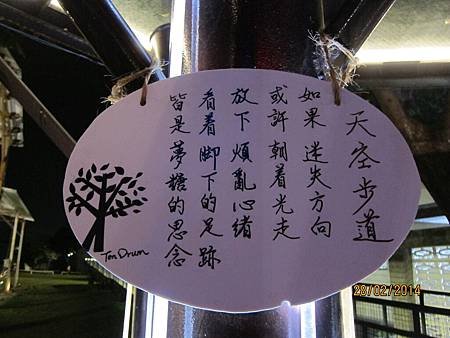 天空步道
如果迷失方向
或許朝着光走
放下煩亂心緒
看着腳下的足跡
皆是夢糖的思念
Ten Drum
28/02/2014